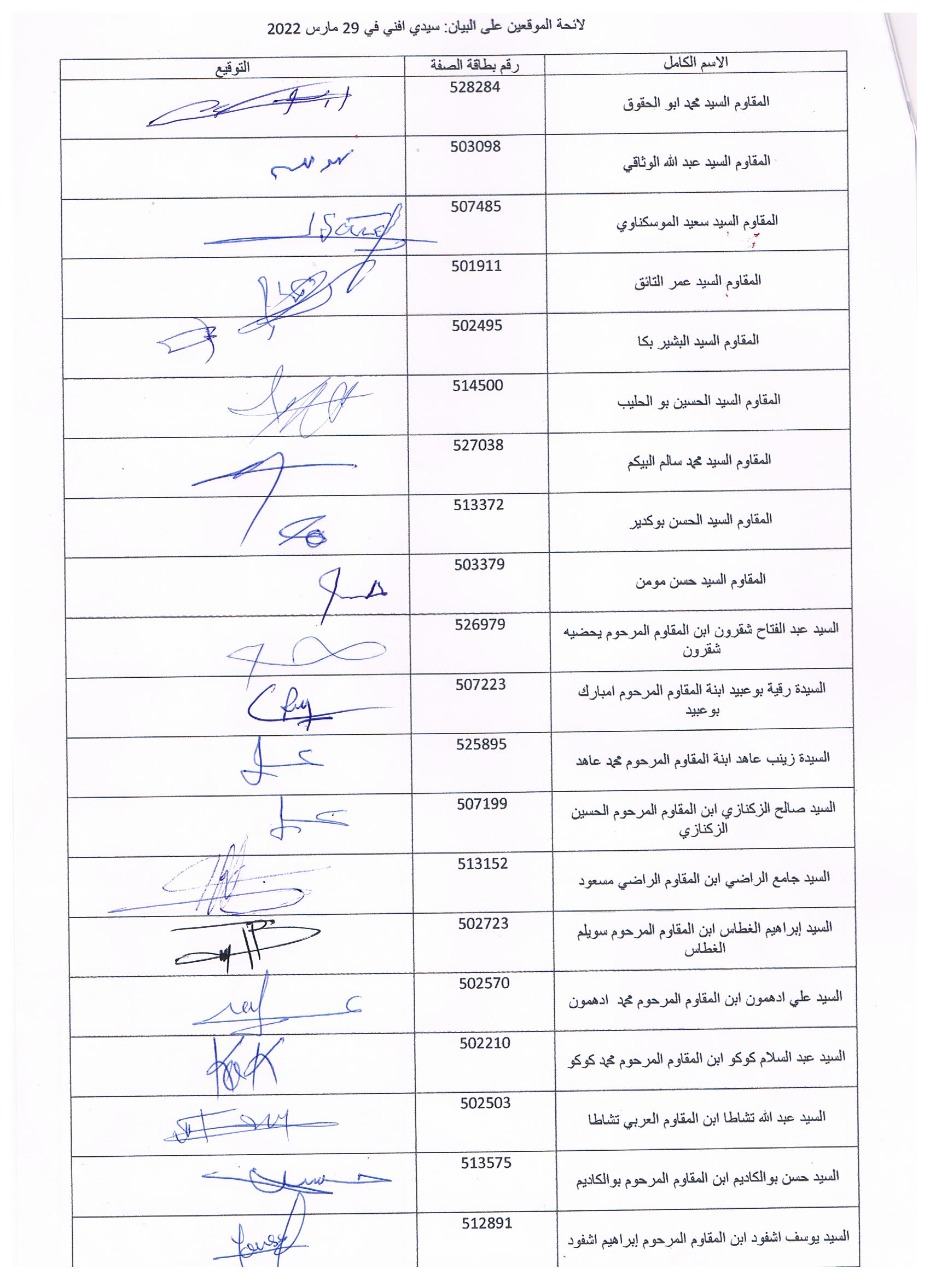 لائحة الموقعين على البيان: سيدي افني في 29 مارس 2022
الاسم الكامل رقم بطاقة الصفة التوقيع
المقاوم السيد محمد ابو الحقوق 528284
المقاوم السيد عبد الله الوثاقي 503098
المقاوم السيد سعيد الموسكناوي 507485
المقاوم السيد عمر التائق 501911
المقاوم السيد البشير بكا 502495
المقاوم السيد الحسين بو الحليب 514500
المقاوم السيد محمد سالم البيكم 527038
المقاوم السيد الحسن بوكدير 513372
المقاوم السيد حسن مومن 503379
السيد عبد الفتاح شقرون ابن المقاوم المرحوم يحضيه 526979
شقرون
السيدة رقية بوعبيد ابنة المقاوم المرحوم امبارك 507223
بوعبيد
السيدة زينب عاهد ابنة المقاوم المرحوم محمد عاهد 525895
السيد صالح الزكنازي ابن المقاوم المرحوم الحسين 507199
الزكنازي
السيد جامع الراضي ابن المقاوم الراضي مسعود 513152
السيد إبراهيم الغطاس ابن المقاوم المرحوم سويلم 502723
الغطاس
السيد علي ادهمون ابن المقاوم المرحوم محمد ادهمون 502570
السيد عبد السلام كوكو ابن المقاوم المرحوم محمد كوكو 502210
السيد عبد الله تشاطا ابن المقاوم العربي تشاطا 502503
السيد حسن بوالكاديم ابن المقاوم المرحوم بوالكاديم 513575
السيد يوسف اشفود ابن المقاوم المرحوم إبراهيم اشفود 512891